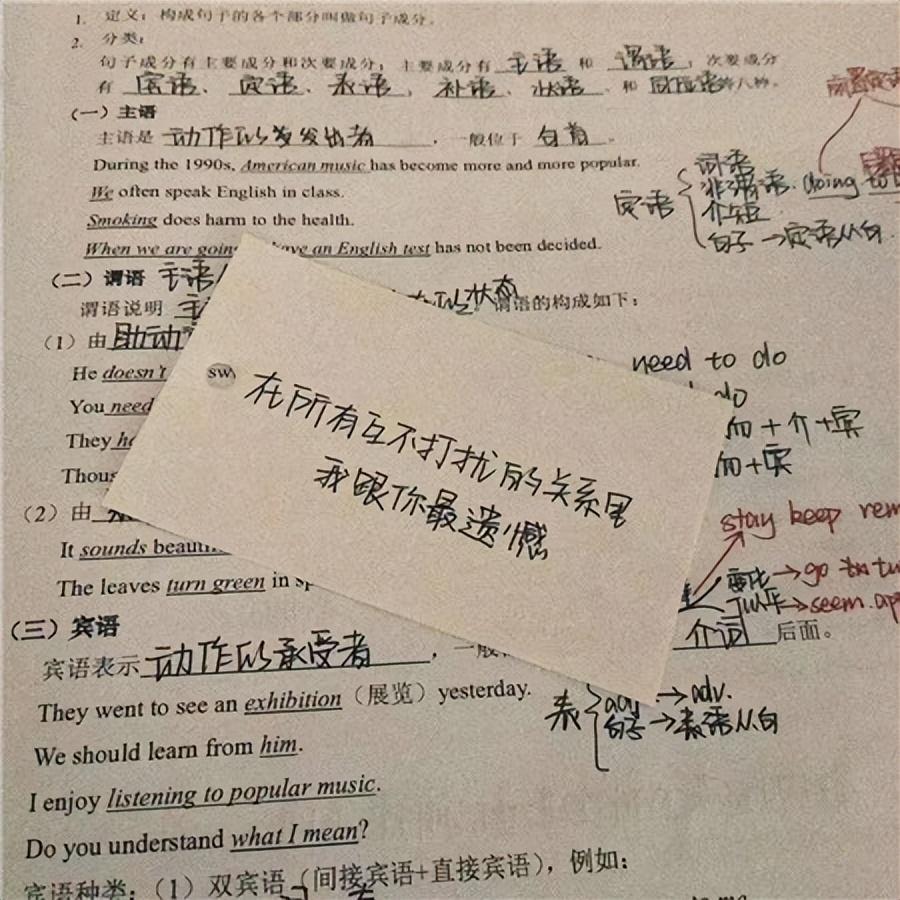 1. 定义：构成句子的各个部分叫做句子成分。
2. 分类：
句子成分有主要成分和次要成分；主要成分有 主语 和 谓语；次要成分
有 宾语、定语、表语、补语、状语、和 同位语等八种。
（一）主语
主语是 动作的发出者，一般位于 句首。
During the 1990s, American music has become more and more popular.
We often speak English in class.
Smoking does harm to the health.
When we are going have an English test has not been decided.
定语
词语
非谓语. doing to
介短
句子→定语从句.
（二）谓语 主语
谓语说明 主 状态。谓语的构成如下：
（1）由 助动
He doesn't
You need
They
Thous
need to do
do
+介+宾
+宾
SW
在所有互不打扰的关系里
我跟你最遗憾
（2）由
It sounds beauti
The leaves turn green in sp
stay keep rem
变化→go tu
→seem. ap
（三）宾语
宾语表示 动作的承受者，一般 介词 后面。
They went to see an exhibition（展览）yesterday.
We should learn from him.
I enjoy listening to popular music.
Do you understand what I mean?
表
adj→adv.
句子→表语从句
宾语种类：（1）双宾语（间接宾语+直接宾语），例如：